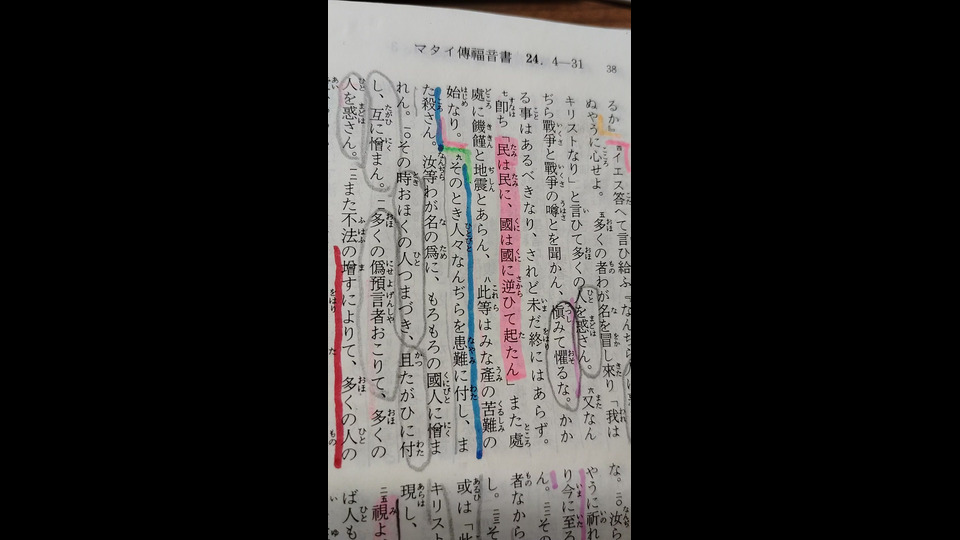 マタイ傳福音書 24. 4—31
38
るか』四イエス答へて言ひ給ふ『なんぢら人に
ぬやうに心せよ。五多くの者わが名を冒し來り「我は
キリストなり」と言ひて多くの人を惑さん。六又なん
ぢら戰爭と戰爭の噂とを聞かん、愼みて懼るな。かか
る事はあるべきなり、されど未だ終にはあらず。
七卽ち「民は民に、國は國に逆ひて起たん」また處
處に饑饉と地震とあらん、八此等はみな產の苦難の
始なり。九そのとき人々なんぢらを患難に付し、ま
た殺さん。汝等わが名の爲に、もろもろの國人に憎ま
れん。一〇その時おほくの人つまづき、且たがひに付
し、互に憎まん。一一多くの僞預言者おこりて、多くの
人を惑さん。一二また不法の增すによりて、多くの人の
な。二〇汝ら
やうに祈れ
り今に至る
ん。二二その
者なから
し。二三そ
或は「此
キリスト
現し、
二五視よ
ば人も